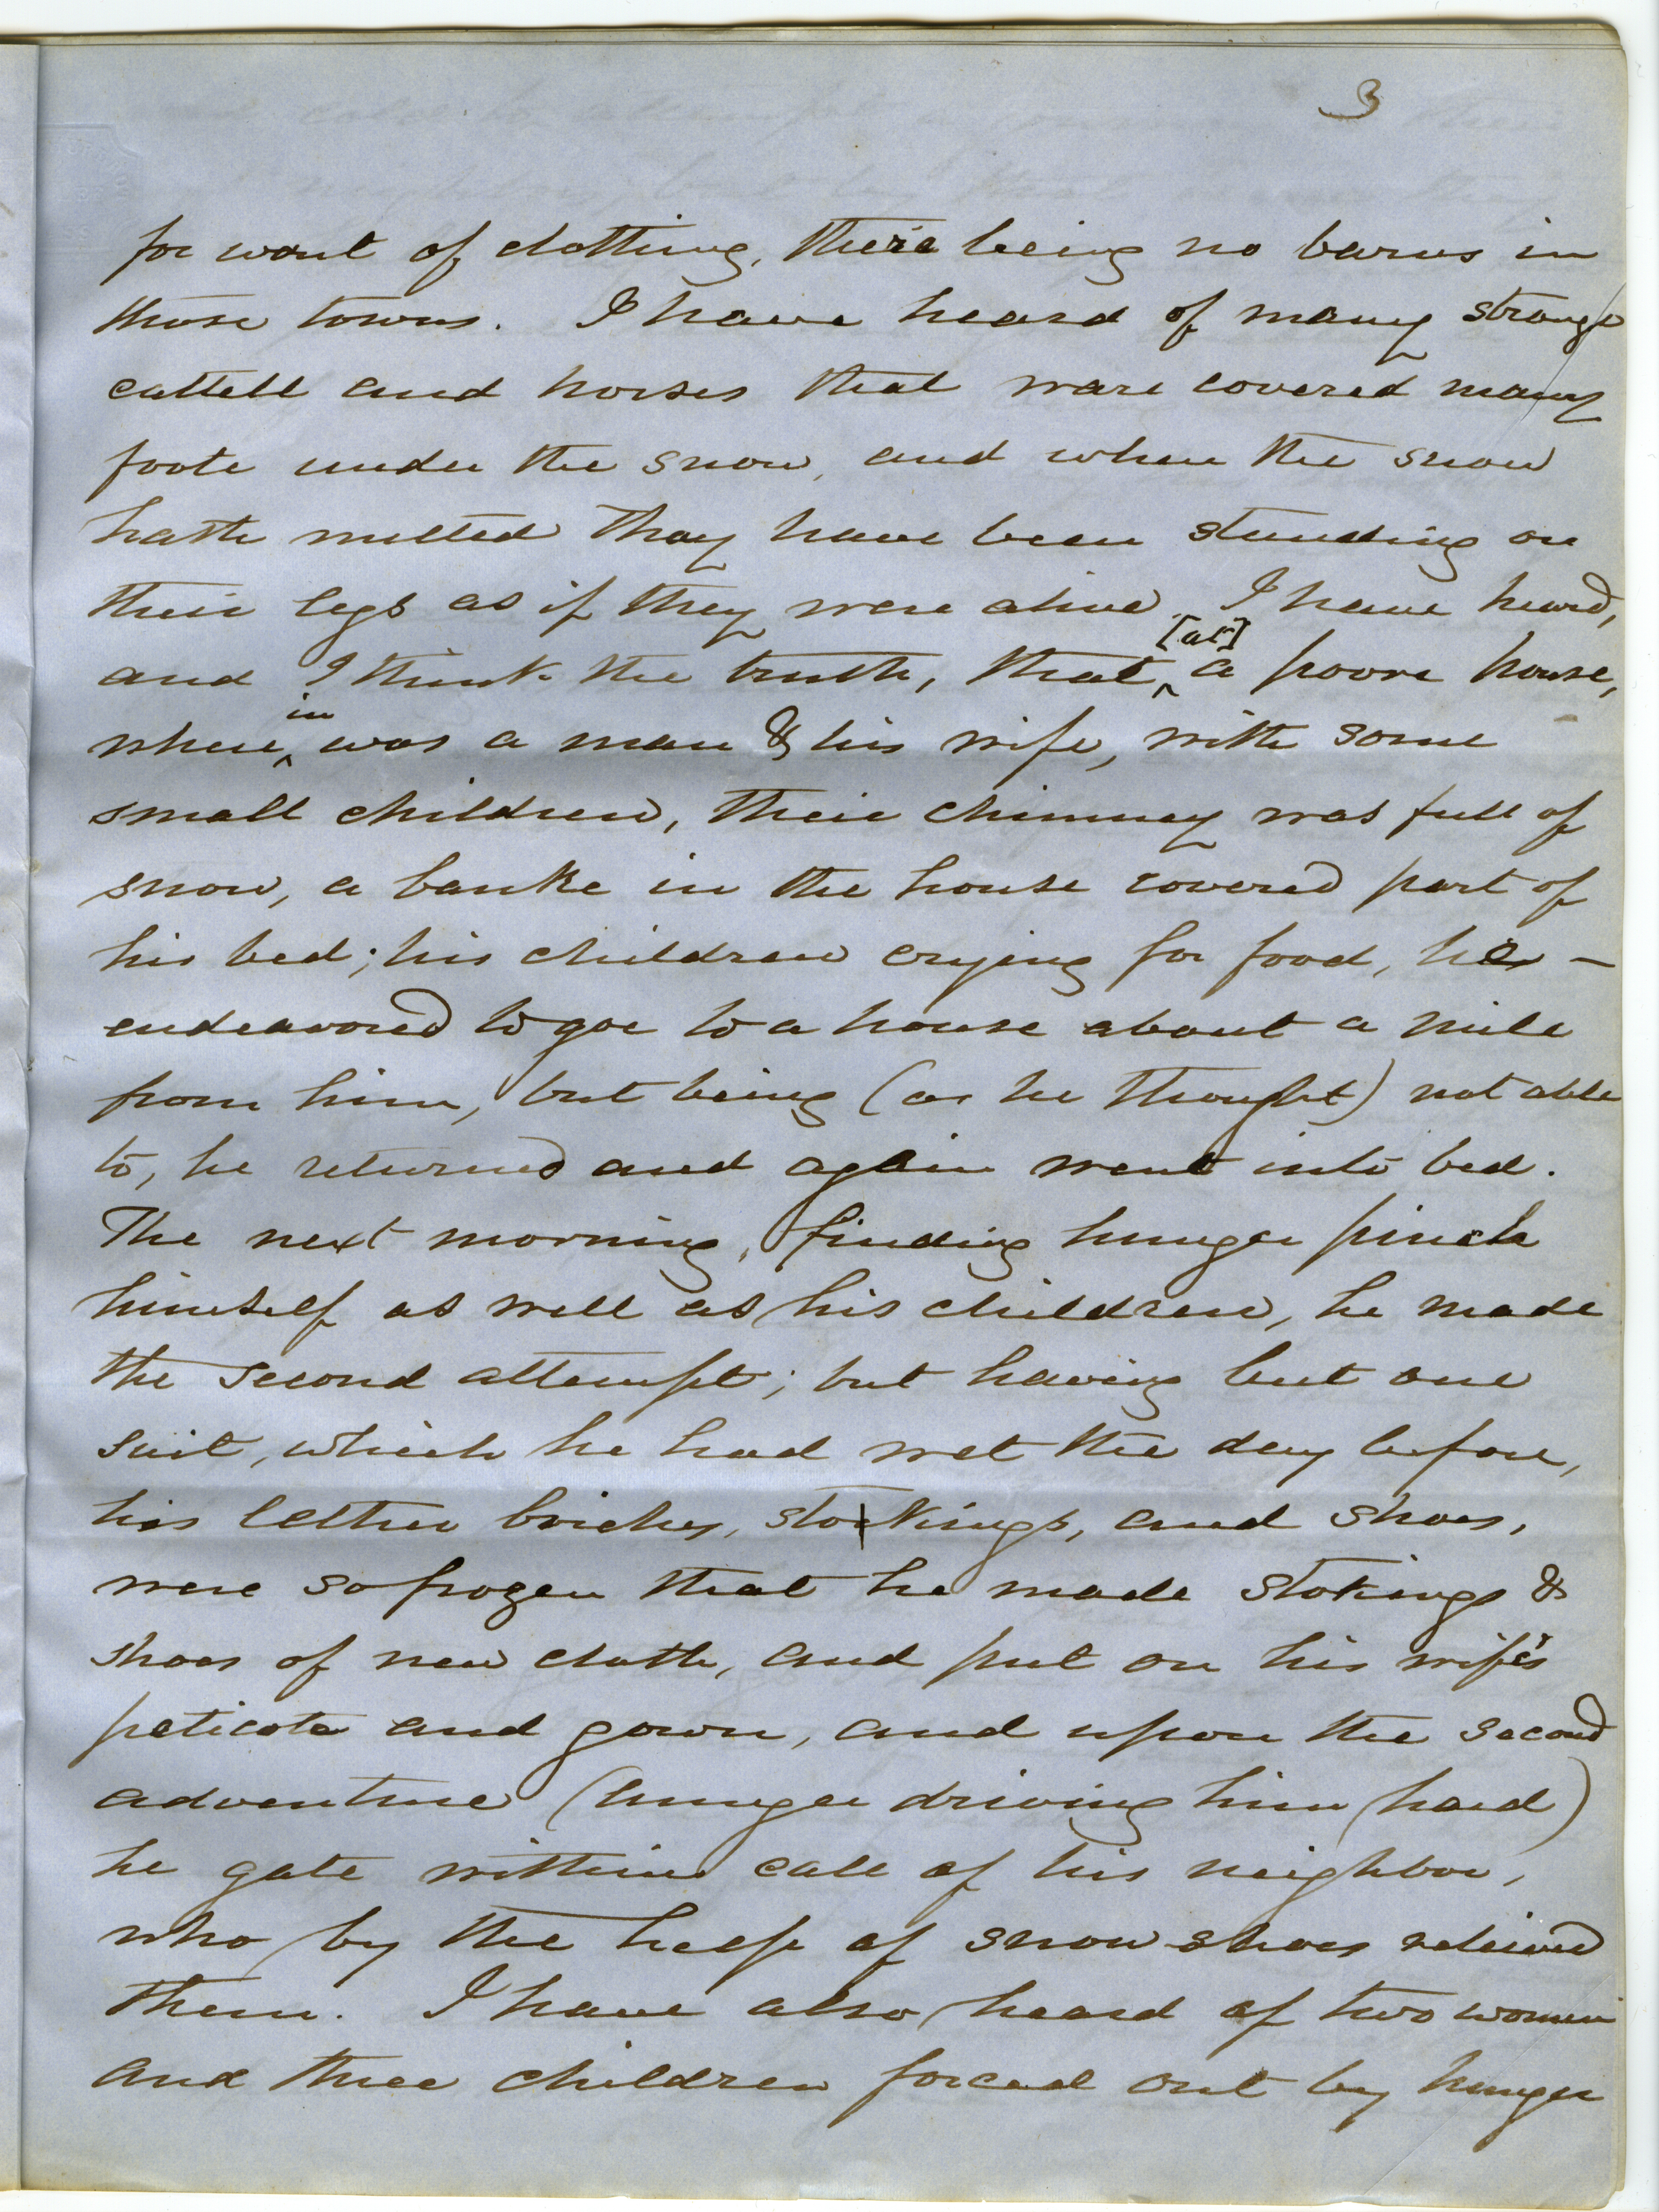 3
for want of clothing, there being no barns in
those towns. I have heard of many strange
cattell and horses that ware covered many
foote under the snow, and when the snow
hath melted thay have been standing on
their legs as if they were alive. I have heard,
and I think the truth, that ^ [at] a poore house,
where ^ in was a man & his wife, with some
small children, their chimney was full of
snow, a banke in the house covered part of
his bed; his children crying for food, he –
endeavored to goe to a house about a mile
from him, but being (as he thought) not able
to, he returned and again went into bed.
The next morning, finding hunger pinch
himself as well as his children, he made
the second attempt; but having but one
suit, which he had wet the day before,
his lether briches, stokings, and shoes,
were so frozen that he made stokings &
shoes of new cloth, and put on his wife's
peticote and gown, and upon the second
adventure (hunger driving him hard)
he gate within call of his neighbor,
who by the help of snow shoes relieved
them. I have also heard of two women
and three children forced out by hunger